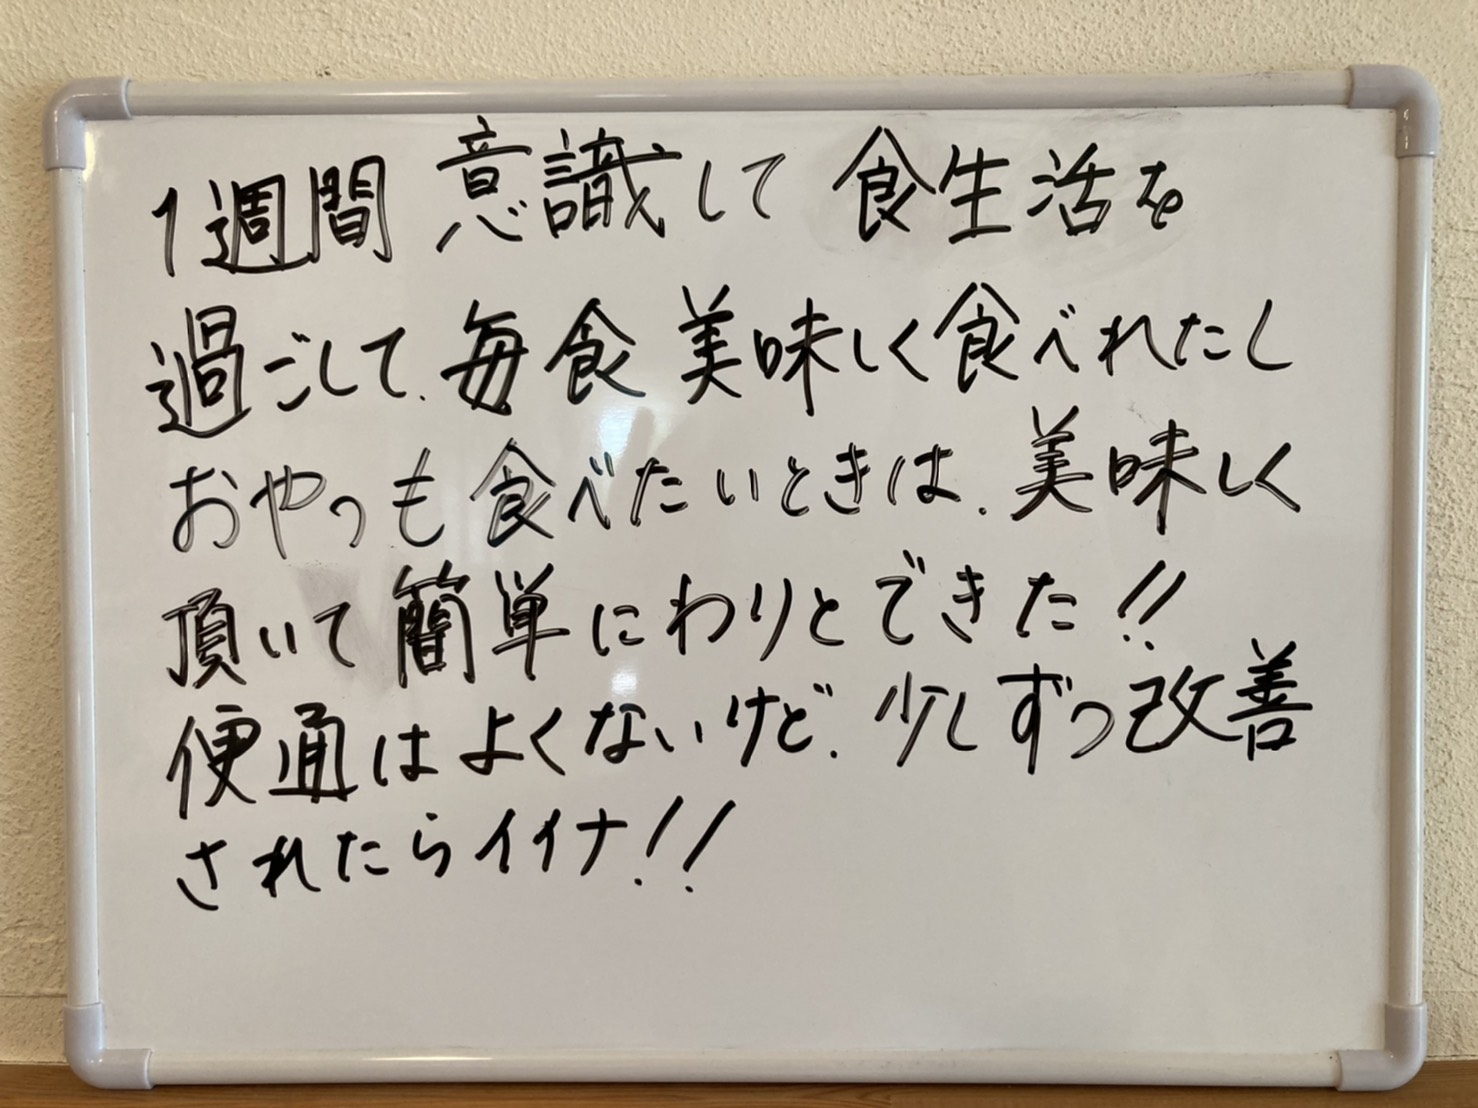 1週間 意識して 食生活を
過ごして、毎食 美味しく食べれたし
おやつも食べたいときは、美味しく
頂いて簡単にわりとできた!!
便通はよくないけど、少しずつ改善
されたらイイナ!!